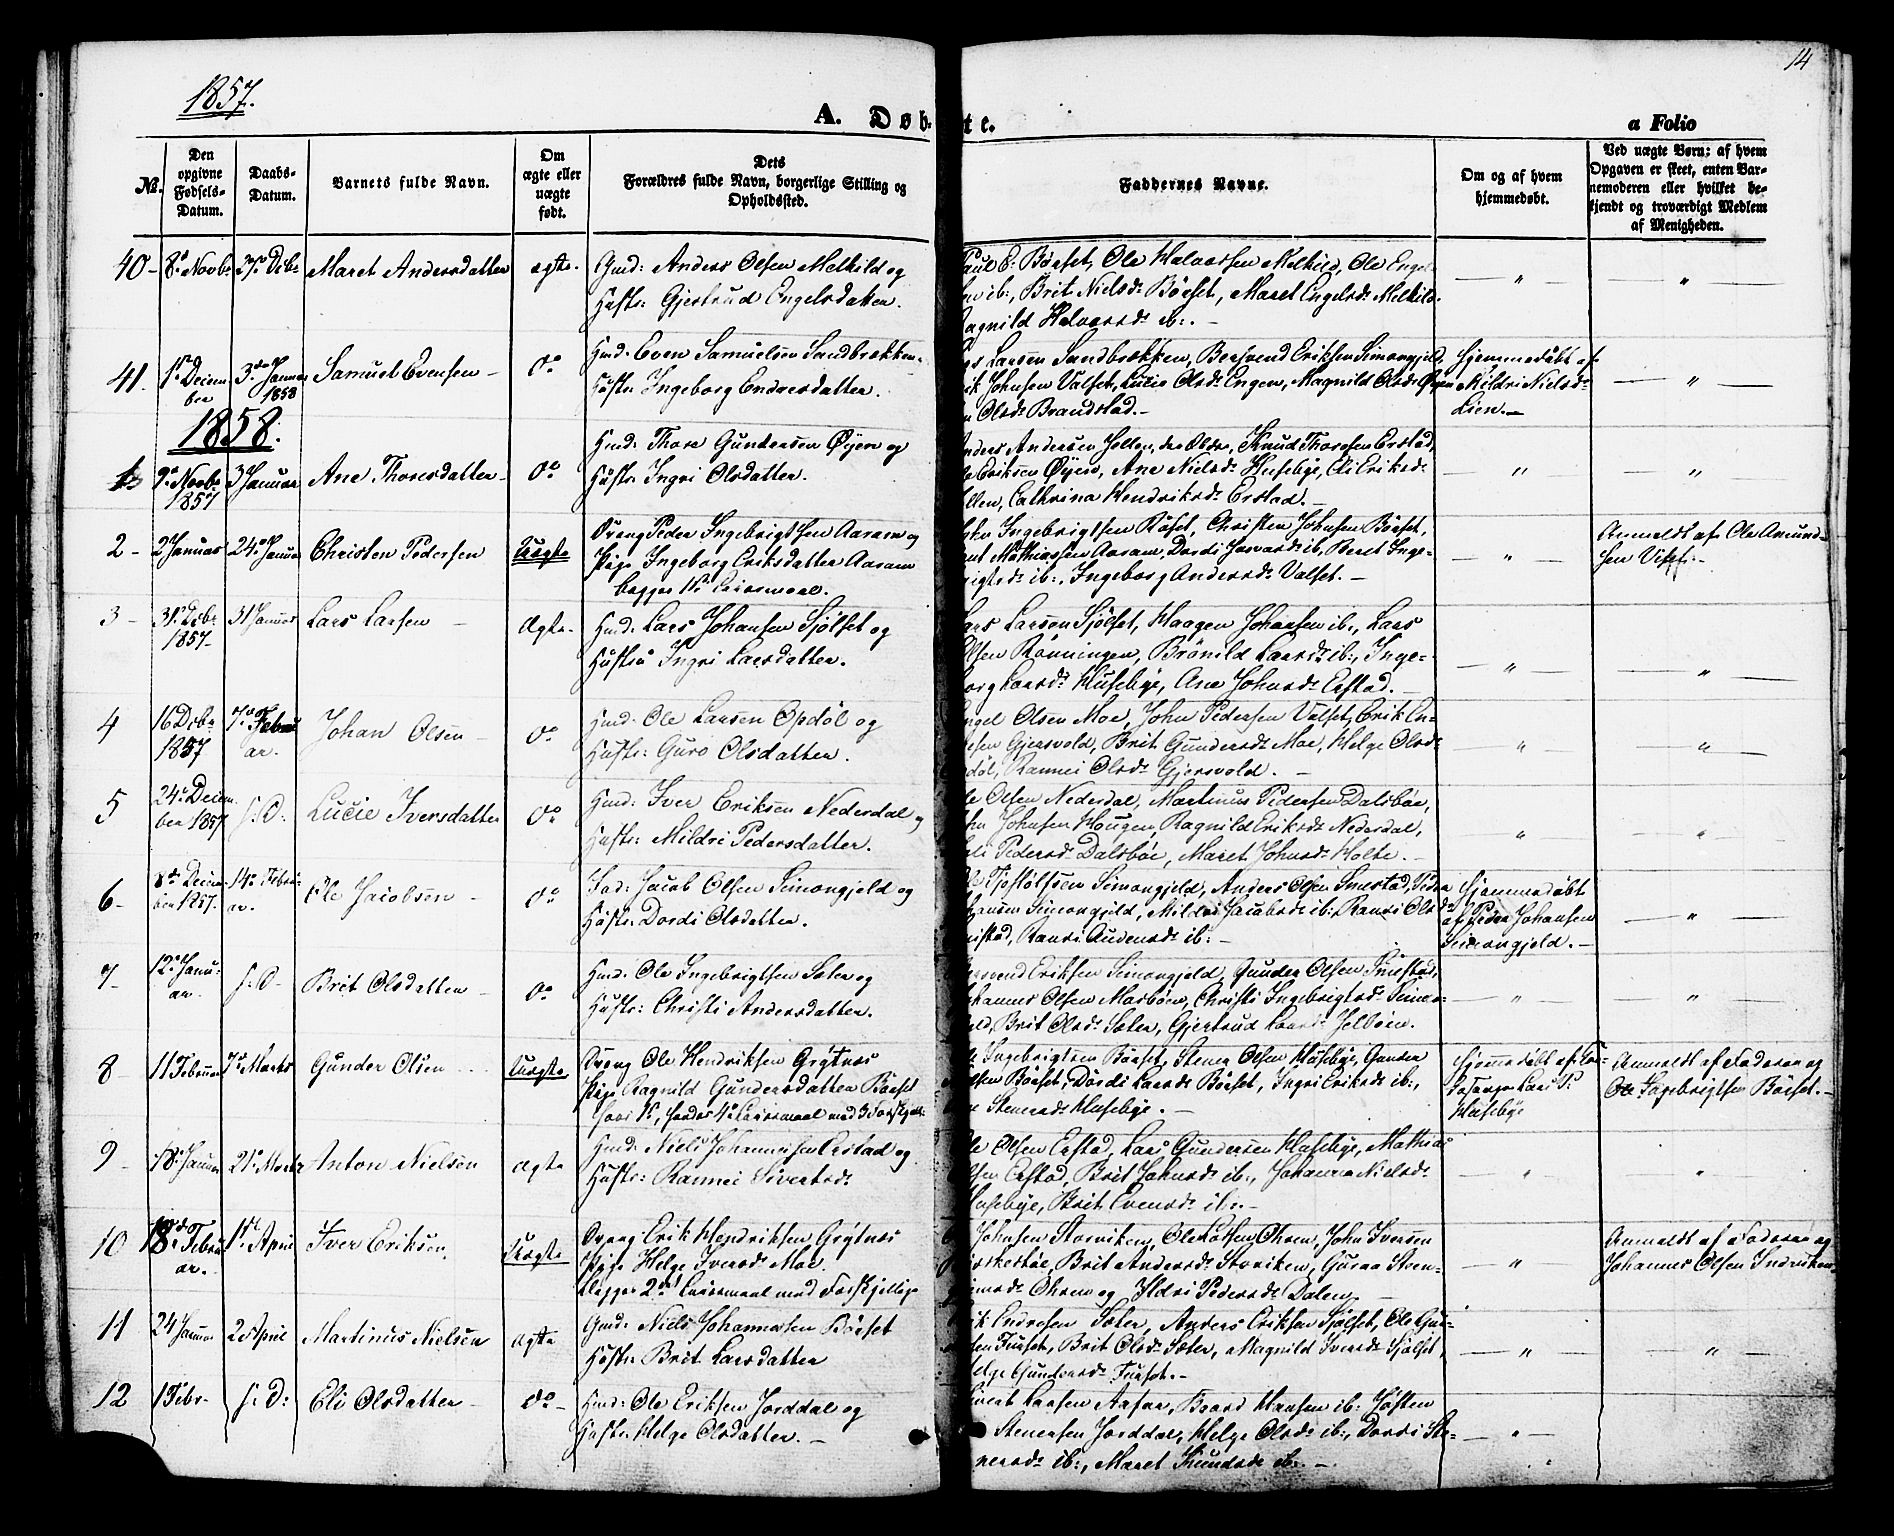 1857.
14
A. Døbte.
a Folio
No.
Den opgivne Fødsels-Datum.
Daabs-Datum.
Barnets fulde Navn.
Om ægte eller uægte født.
Dets Forældres fulde Navn, borgerlige Stilling og Opholdssted.
Faddernes Navne.
Om og af hvem hjemmedøbt.
Ved uægte Børn: af hvem Opgaven er skeet, enten Barnemoderen eller hvilket bekjendt og troværdigt Medlem af Menigheden.
40 - 8de Novbr Maret Andersdatter ægte. Gmd: Anders Olsen Melkild og
Hustr: Gjertrud Engelsdatter.
Paul E: Børset, Ole Halvorsen Melkild, Ole Engel-
sen ib:, Brit Nielsdr Børset, Maret Engelsdr Melkild
Ragnild Halvorsdr ib:. -
41. 1ste Decem-
ber 3die Januar
1858 Samuel Evensen - Do Hmd: Even Samuelsen Sandbrækken
Hustr: Ingeborg Endresdatter.
Lars Larsen Sandbrækken, Bersvend Eriksen Simongjeld,
Erik Johnsen Valset, Lucie Olsdr Engen, Magnild Olsdr Øyen
Olsdr Brandstad. -
Hjemmedøbt af
Mildri Nielsdr
Lien. -
1858.
1 9de Novbr
1857 3 Januar Ane Thoresdatter Do Hmd: Thore Gundersen Øyen og
Hustr: Ingri Olsdatter.
Anders Andersen Jollen, den Ældre, Knud Thoresen Erstad,
Ole Eriksen Øyen, Ane Nielsdr Husebye, Eli Eriksdr
Jollen, Cathrina Hendriksdr Erstad. -
2 - 2 Januar 24de Januar Christen Pedersen Uægte Dreng Peder Ingebrigtsen Aaram og
Pige Ingeborg Eriksdatter Aaram
begges 1ste Leiermaal.
Ingebrigtsen Røset, Christen Johnsen Børset,
Mathiassen Aaram, Dordi Ivarsdr ib, Beret Inge-
brigtsdr ib:, Ingeborg Andersdr Valset. -
Anmeldt af Ole Amund-
sen
3 - 31te Decbr
1857. 31 Januar Lars Larsen ægte. Hmd: Lars Johansen Sjølset og
Hustru Ingri Larsdatter.
Lars Larsen Sjølset, Haagen Johansen ib:, Lars
Olsen Rønningen, Brønild Larsdr ib:, Inge-
borg Larsdr Husebye, Ane Johnsdr Erstad. -
4 16 Decbr
1857 7de Febru-
ar. Johan Olsen - Do Hmd: Ole Larsen Opdøl og
Hustr: Guro Olsdatter.
Engel Olsen Moe, John Pedersen Valset, Erik En-
Gjersvold, Brit Gundersdr Moe, Helge Olsdr
Opdøl, Rannei Olsdr Gjersvold. -
5 24de Decem-
ber 1857 s: D: Lucie Iversdatter Do Hmd: Iver Eriksen Nederdal og
Hustr: Mildri Pedersdatter.
Ole Olsen Nederdal, Martinus Pedersen Dalsbøe,
John Johnsen Hougen, Ragnild Eriksdr Nederdal,
Eli Pedersdr Dalsbøe, Maret Johnsdr Holte. -
6 - 8de Decem-
ber 1857. 14de Febru-
ar. Ole Jacobsen - Do Jacob Olsen Simongjeld og
Hustr: Dordi Olsdatter.
Ole Tjostolfsen Simongjeld, Anders Olsen Smestad, Peder
Johansen Simongjeld, Mildri Jacobsdr ib:, Randi Olsdr
Smestad, Randi Audensdr ib: -
Hjemmedøbt
af Peder Johansen
Simongjeld. -
7 - 12te Janu-
ar. s: D - Brit Olsdatter - Do Hmd: Ole Ingebrigtsen Sæter og
Hustr: Christi Andersdatter.
Bersvend Eriksen Simongjeld, Gunder Olsen Smestad,
Johannes Olsen Marbøen, Christi Ingebrigtsdr Simon-
gjeld, Brit Olsdr Sæter, Gjertrud Larsdr Selbøen.
8 - 11 Februar 7de Marts Gunder Olsen Uægte Dreng Ole Hendriksen Grytnes
Pige Ragnild Gundersdatter Børset
Ole Ingebrigtsen Børset, Stener Olsen Husebye, Gunder
Olsen Børset, Dordi Larsdr Børset, Ingri Eriksdr ib:,
Stenersdr Husebye. -
Hjemmedøbt af
Lars
Husebye
Anmeldt af Faderen og
Ole Ingebrigtsen Børset. -
9 - 18de Januar 21de Marts Anton Nielsen ægte Hmd: Niels Johannesen Erstad og
Hustr: Rannei Sivertsdr
Ole Olsen Erstad, Lars Gundersen Husebye, Mathias
Olsen Erstad, Brit Johnsdr ib:, Johanna Nielsdr
Husebye, Brit Evensdr ib:. -
10 18de Febru-
ar. 1ste April Iver Eriksen. Uægte Dreng Erik Hendriksen Grytnes
Pige Helge Iversdr Moe.
Begges 2det Leiermaal med Forskjellige
Johnsen Storviken, Ole Olsen Ohren, John Iversen
Brit Andersdr Storviken, Guraa Sten-
ersdr Ohren og Ildri Pedersdr Dalen. -
Anmeldt af Faderen og
Johannes Olsen Indviken.
11 24 Januar 2den April Martinus Nielsen ægte Gmd: Niels Johannesen Børset
Hustr: Brit Larsdatter
Erik Endresen Sæter, Anders Eriksen Sjølset, Ole Gun-
dersen Furset, Brit Olsdr Sæter, Magnild Iversdr Sjølset,
Helge Gundersdr Furset. -
12 1 Febr - s: D: Eli Olsdatter - Do - Hmd: Ole Eriksen Jorddal og
Hustr: Helge Olsdatter. -
Sivert Larsen Aasen, Baard Hansen ib:
Stenersen Jorddal, Helge Olsdr ib:, Dordi Ste-
nersdr ib:, Maret Knudsdr ib:. -